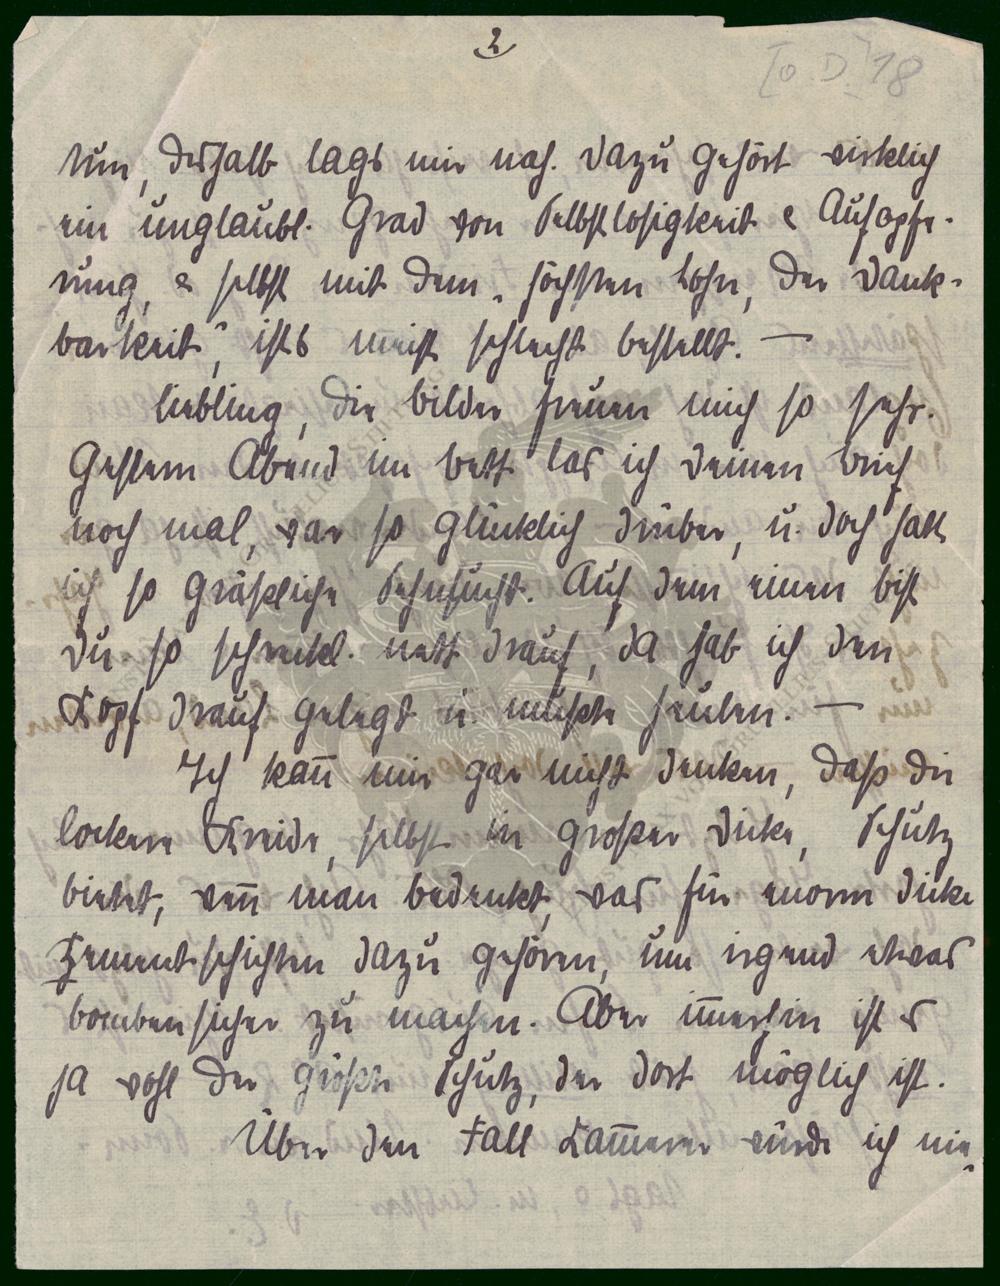 2
[o. D.] 18
Nun, deshalb lags mir nah. Dazu gehört wirklich
ein unglaubl. Grad von Selbstlosigkeit & Aufopfe-
rung, & selbst mit dem „höchsten Lohn, der Dank-
barkeit", ists meist schlecht bestellt. —
Liebling, die Bilder freuen mich so sehr.
Gestern Abend im Bett las ich Deinen Brief
noch mal, war so glücklich drüber, u. doch hatte
ich so gräßliche Sehnsucht. Auf dem einen bist
Du so schreckl. nett drauf, da hab ich den
Kopf drauf gelegt u. mußte heulen. —
Ich kan̅ mir gar nicht denken, daß die
lockere Kreide, selbst in großer Dicke, Schutz
bietet, wen̅ man bedenkt, was für enorm dicke
Zementschichten dazu gehören, um irgend etwas
bombensicher zu machen. Aber im̅erhin ist es
ja wohl der größte Schutz, der dort möglich ist.
Über den Fall Kam̅erer würde ich nie